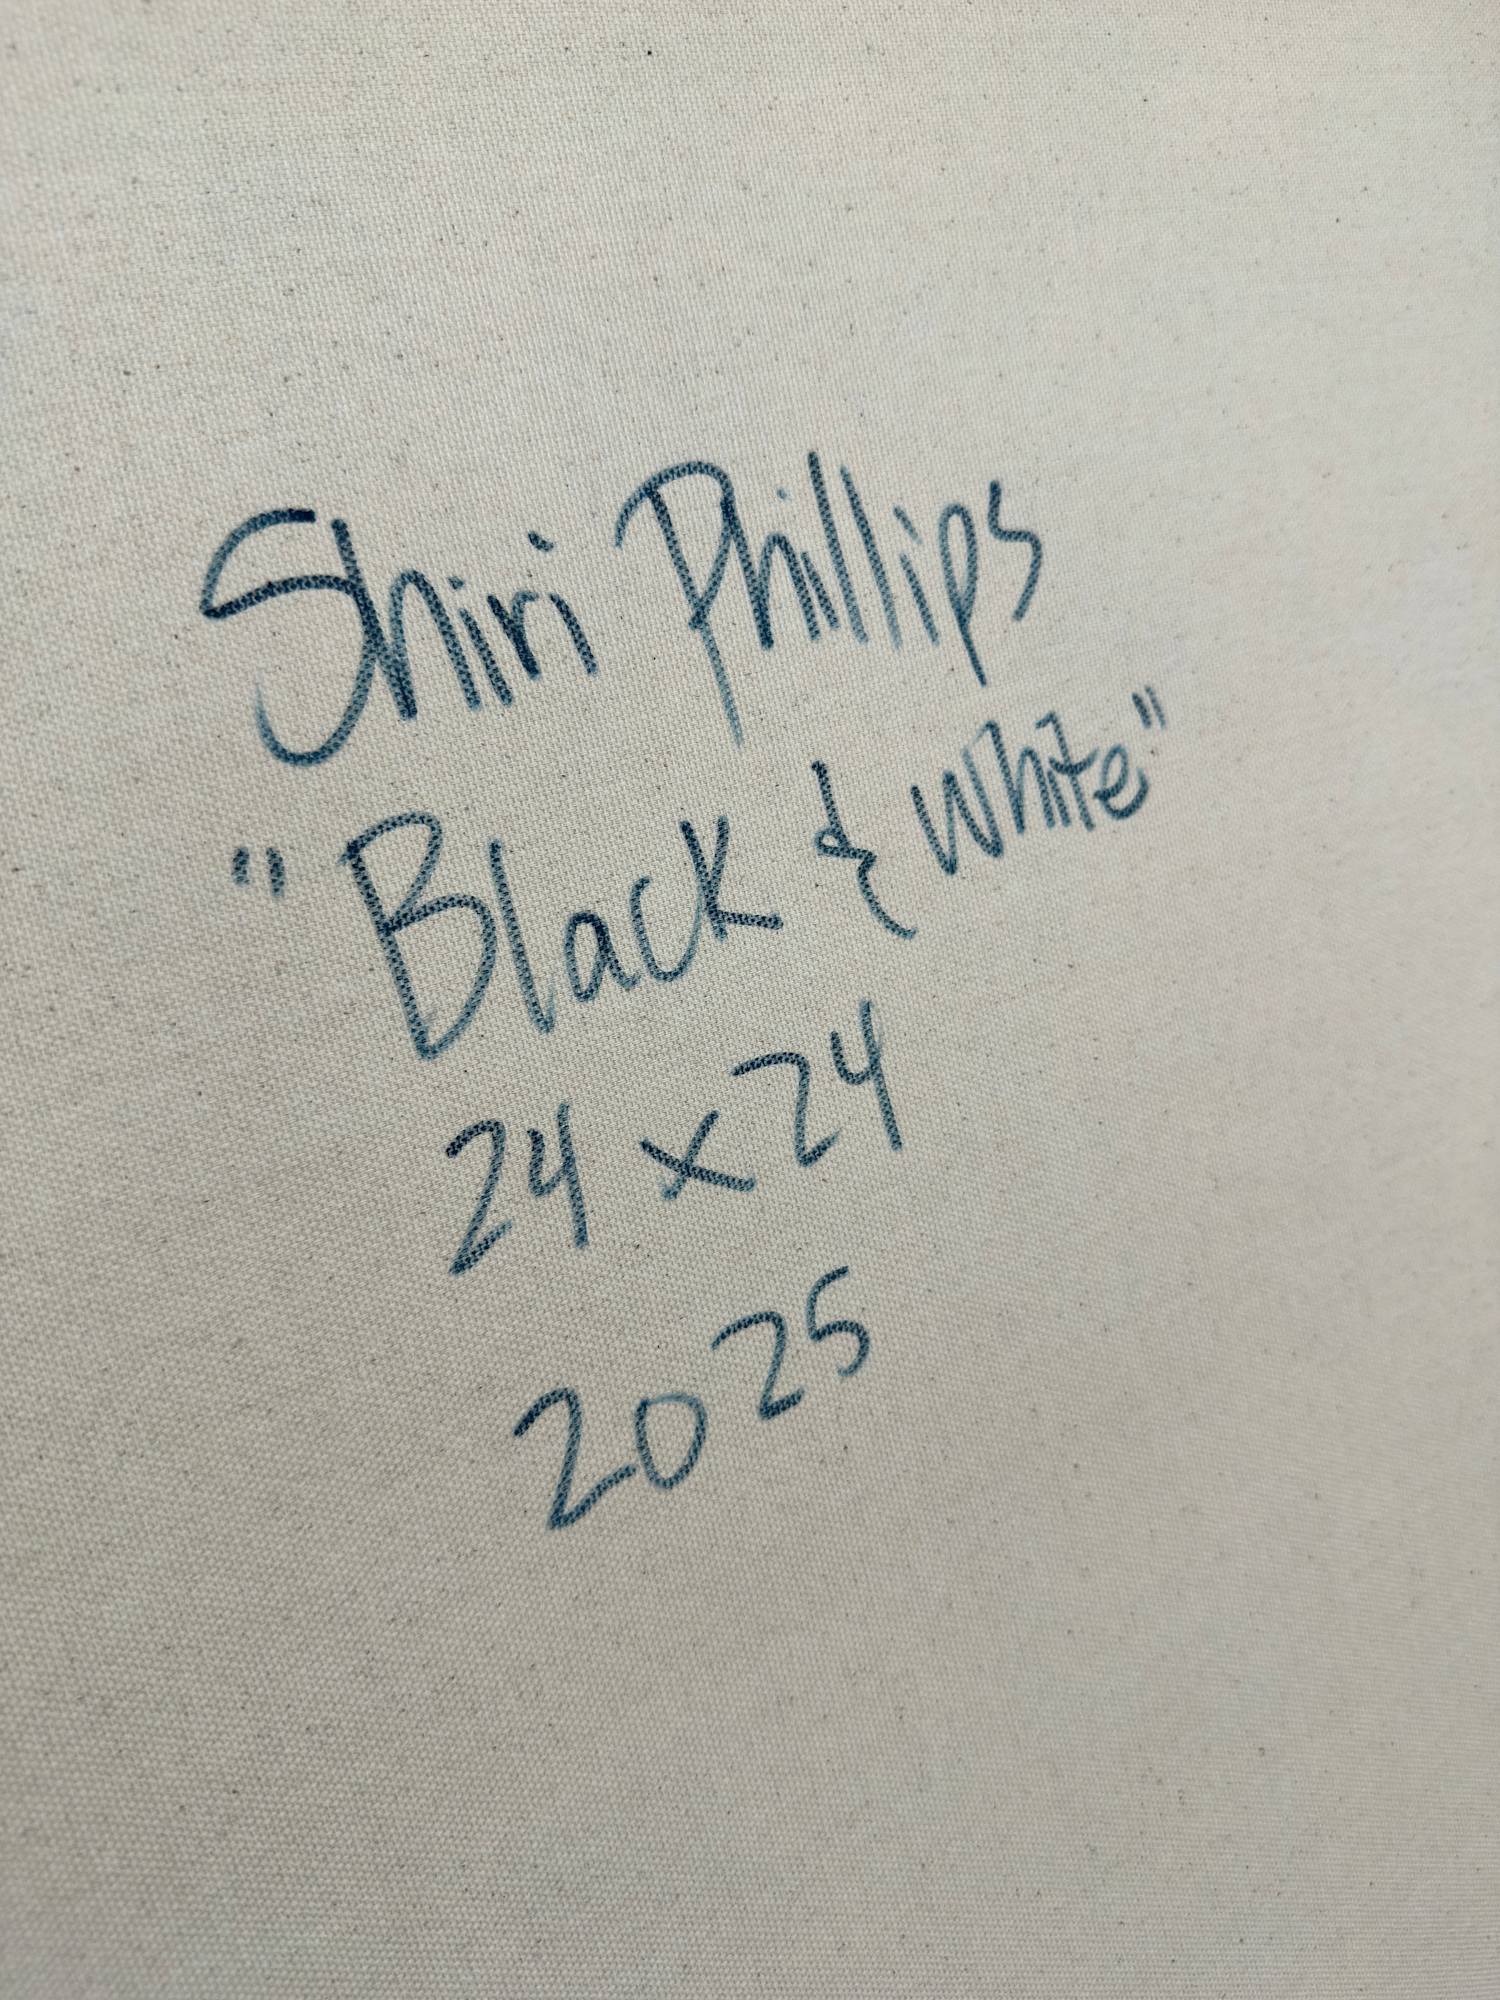 Shiri Phillips
"Black & White"
24 x 24
2025